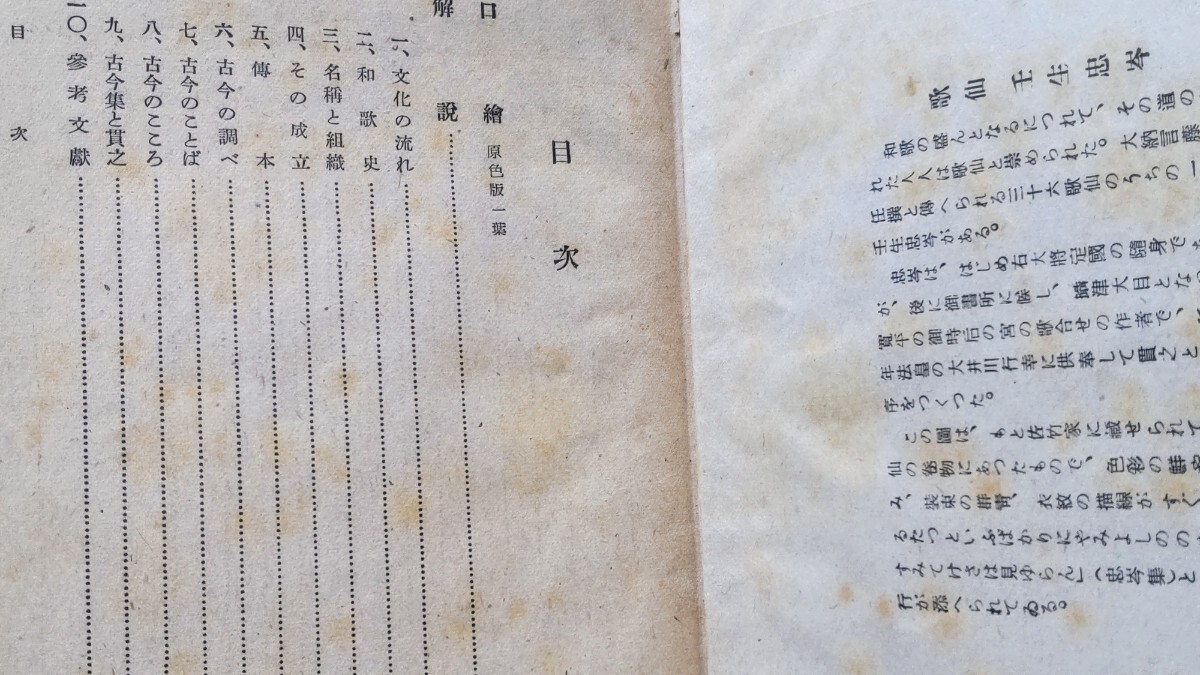 歌仙 壬生忠岑
和歌の盛んとなるにつれて、その道の
れた人人は歌仙と崇められた。大納言藤
任撰と傳へられる三十六歌仙のうちの一
壬生忠岑がある。
忠岑は、はじめ右大將定國の隨身で
が、後に御書所に候し、攝津大目とな
寬平の御時后の宮の歌合せの作者で、
年法皇の大井川行幸に供奉して貫之と
序をつくつた。
この圖は、もと佐竹家に藏せられて
仙の繪物にあつたもので、色彩の鮮
み、裝束の群靑、衣紋の描線がすぐ
るたつといふばかりにやみよしのの
すみてけさは見ゆらん」（忠岑集）と
行が添へられてゐる。
目次
口繪 原色版一葉
解說
一、文化の流れ
二、和歌史
三、名稱と組織
四、その成立
五、傳本
六、古今の調べ
七、古今のことば
八、古今のこころ
九、古今集と貫之
一〇、參考文獻
目次